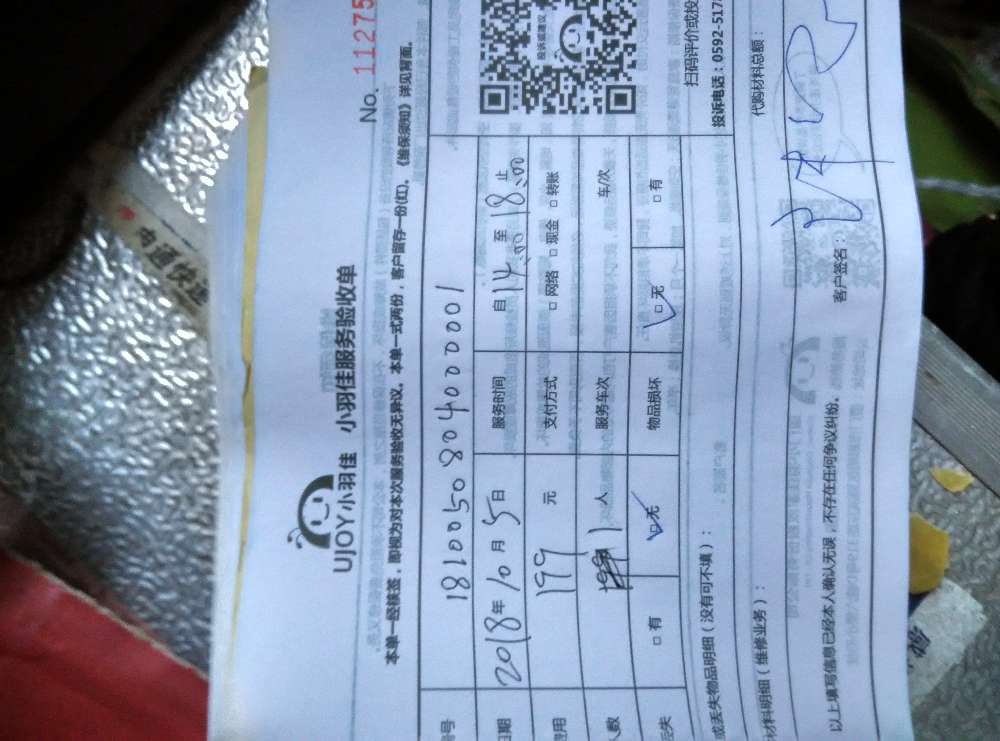 No. 11275
UJOY小羽佳 小羽佳服务验收单
本单一经续签，即视为对本次服务验收无异议。本单一式两份，客户留存一份(红)。《维保须知》详见背面。
号 1810050804000001
日期 2018年10月5日 服务时间 自14:00至18:00止
费用 199 元 支付方式 □网络 □现金 □转账
人数 1 人 服务车次 车/次
丢失 □有 □无 物品损坏 □无 □有
投诉或建议
扫码评价或投
投诉电话：0592-5178
或丢失物品明细（没有可不填）：
材料明细（维修业务）： 代购材料总额：
以上填写信息已经本人确认无误，不存在任何争议纠纷。 客户签名：
申通快递